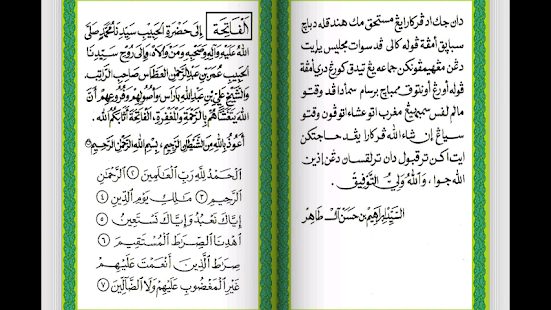 دان جك ادڤركارايڠ مستحق مك هندقله دباچ
سباڽق امڤة ڤوله كالي ڤد سوات مجليس
دڠن مڠهيمڤونكن جماعه يڠ تيدق كورڠ دري أمڤة
ڤوله أورڠ اونتوق ممباچ برسام سمادا ڤد وقتو
مالم لڤس سمبهيڠ مغرب اتو عشا اتوڤون وقتو
سياڠ إن شاء الله ڤركارا يڠد حاجتكن
ايت اكن ترقبول دان ترلقسان دڠن إذين
الله جوا، وَاللهُ وَلِيُّ التَّوْفِيقِ.
السيد إبراهيم بن حسن آل طاهر
اَلْفَاتِحَة إِلَى حَضْرَةِ الْحَبِيبِ سَيِّدِنَا مُحَمَّدٍ صَلَّى
اللهُ عَلَيْهِ وَآلِهِ وَصَحْبِهِ وَمَنْ وَالَاهُ وَإِلَى رُوحِ سَيِّدِنَا
الْحَبِيبِ عُمَرَ بْنِ عَبْدِ الرَّحْمَنِ الْعَطَّاسِ صَاحِبِ الرَّاتِبِ،
وَالشَّيْخِ عَلِيِّ بْنِ عَبْدِ اللهِ بَارَاسٍ وَأُصُولِهِمْ وَفُرُوعِهِمْ أَنَّ
اللهَ يَتَغَشَّاهُمْ بِالرَّحْمَةِ وَالْمَغْفِرَةِ، الْفَاتِحَةَ أَثَابَكُمُ اللهُ.
أَعُوذُ بِاللهِ مِنَ الشَّيْطَانِ الرَّجِيمِ، بِسْمِ اللهِ الرَّحْمَنِ الرَّحِيمِ ١
اَلْحَمْدُ لِلَّهِ رَبِّ الْعَالَمِينَ ٢ الرَّحْمَنِ
الرَّحِيمِ ٣ مَالِكِ يَوْمِ الدِّينِ ٤
إِيَّاكَ نَعْبُدُ وَإِيَّاكَ نَسْتَعِينُ ٥
اهْدِنَا الصِّرَاطَ الْمُسْتَقِيمَ ٦
صِرَاطَ الَّذِينَ أَنْعَمْتَ عَلَيْهِمْ
غَيْرِ الْمَغْضُوبِ عَلَيْهِمْ وَلَا الضَّالِّينَ ٧